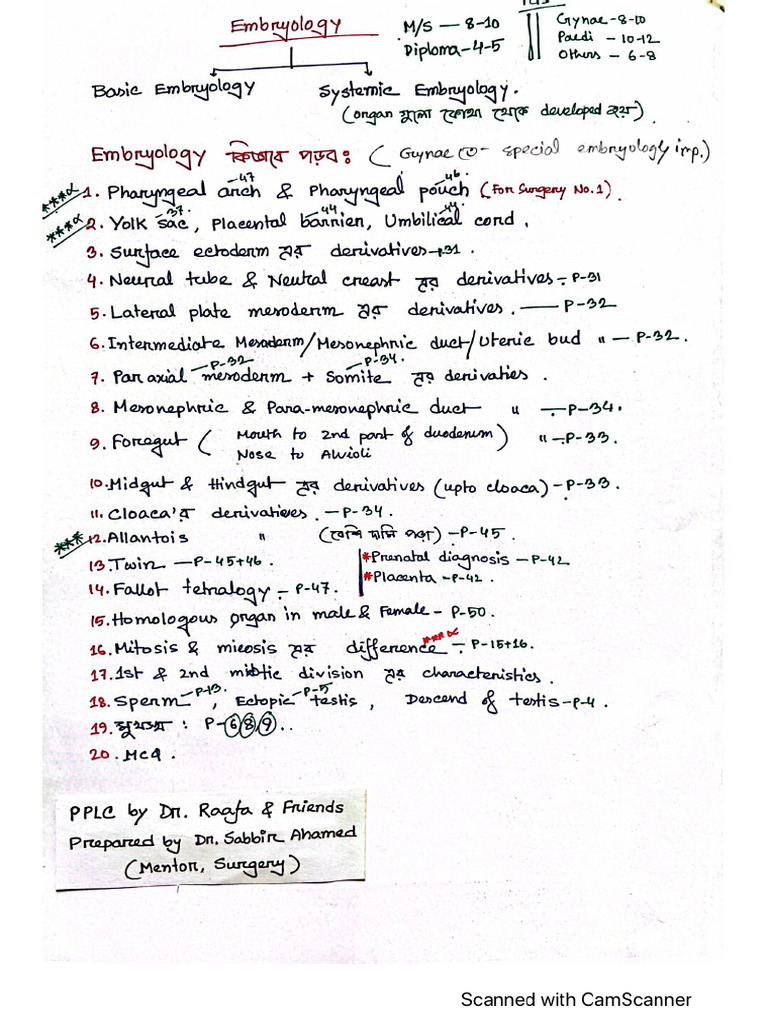 Embryology
M/S — 8-10
Diploma-4-5
Gynae-8-10
Paedi - 10-12
Others - 6-8
Basic Embryology
Systemic Embryology.
(organ গুলো কোথা থেকে developed হয়).
Embryology কিভাবে পড়বঃ (Gynae তে- special embryology imp.)
***α 1. Pharyngeal arch -47 & Pharyngeal pouch -46. (For Surgery No.1).
***α 2. Yolk sac -37., Placental barrier -44, Umbilical cord -44.
3. Surface ectoderm এর derivatives-31.
4. Neural tube & Neutral creast এর derivatives - P-31
5. Lateral plate mesoderm এর derivatives. — P-32
6. Intermediate Mesoderm/Mesonephric duct/Uteric bud " — P-32.
7. Par axial mesoderm -P-32 + Somite -P-34. এর derivaties.
8. Mesonephric & Para-mesonephric duct " - P-34.
9. Foregut ( Mouth to 2nd part of duodenum ) "-P-33.
Nose to Alvioli
10. Midgut & Hindgut এর derivatives (upto cloaca)-P-33.
11. Cloaca'র derivatives. -P-34.
*** 12. Allantois " (বেশি দামি পড়া) -P-45.
13. Twin — P-45+46.
*Prenatal diagnosis - P-42
14. Fallot tetralogy - P-47.
*Placenta -P-42.
15. Homologous organ in male & Female - P-50.
16. Mitosis & mieosis এর difference - P-15+16.
17. 1st & 2nd miotic division এর characteristics.
18. Sperm -P-13., Ectopic testis -P-5, Descend of testis-P-4.
19. : P-6 8 9..
20. MCQ.
PPLC by Dr. Raafa & Friends
Prepared by Dr. Sabbir Ahamed
(Mentor, Surgery)
Scanned with CamScanner